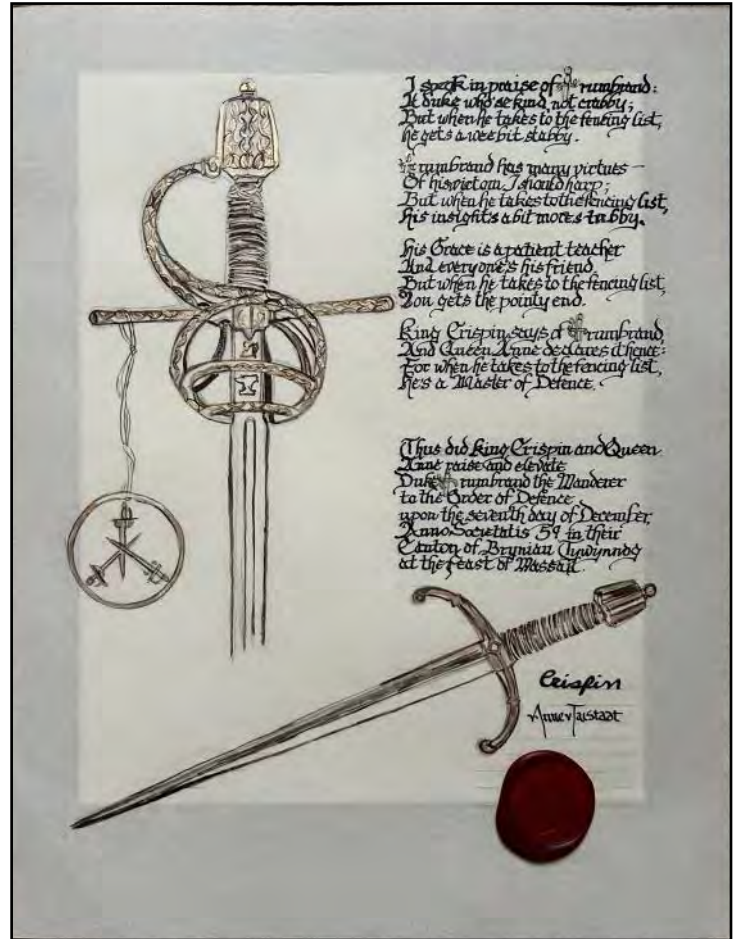 I speak in praise of Trumbrand:
A duke who'se kind, not crabby;
But when he takes to the fencing list,
he gets a wee bit stabby.
Trumbrand has many virtues —
Of his wisdom I should harp;
But when he takes to the fencing list,
His insight's a bit more stabby.
His Grace is a patient teacher
And everyone's his friend
But when he takes to the fencing list,
You gets the pointy end.
King Crispin says of Trumbrand,
And Queen Anne declares it hence:
For when he takes to the fencing list,
He's a Master of Defence.
Thus did King Crispin and Queen
Anne raise and elevate
Duke Trumbrand the Wanderer
to the Order of Defence
upon the seventh day of December,
Anno Societatis 59 in their
Canton of Brynian Tywynnog
at the Feast of Wassail.
Crispin
Anne